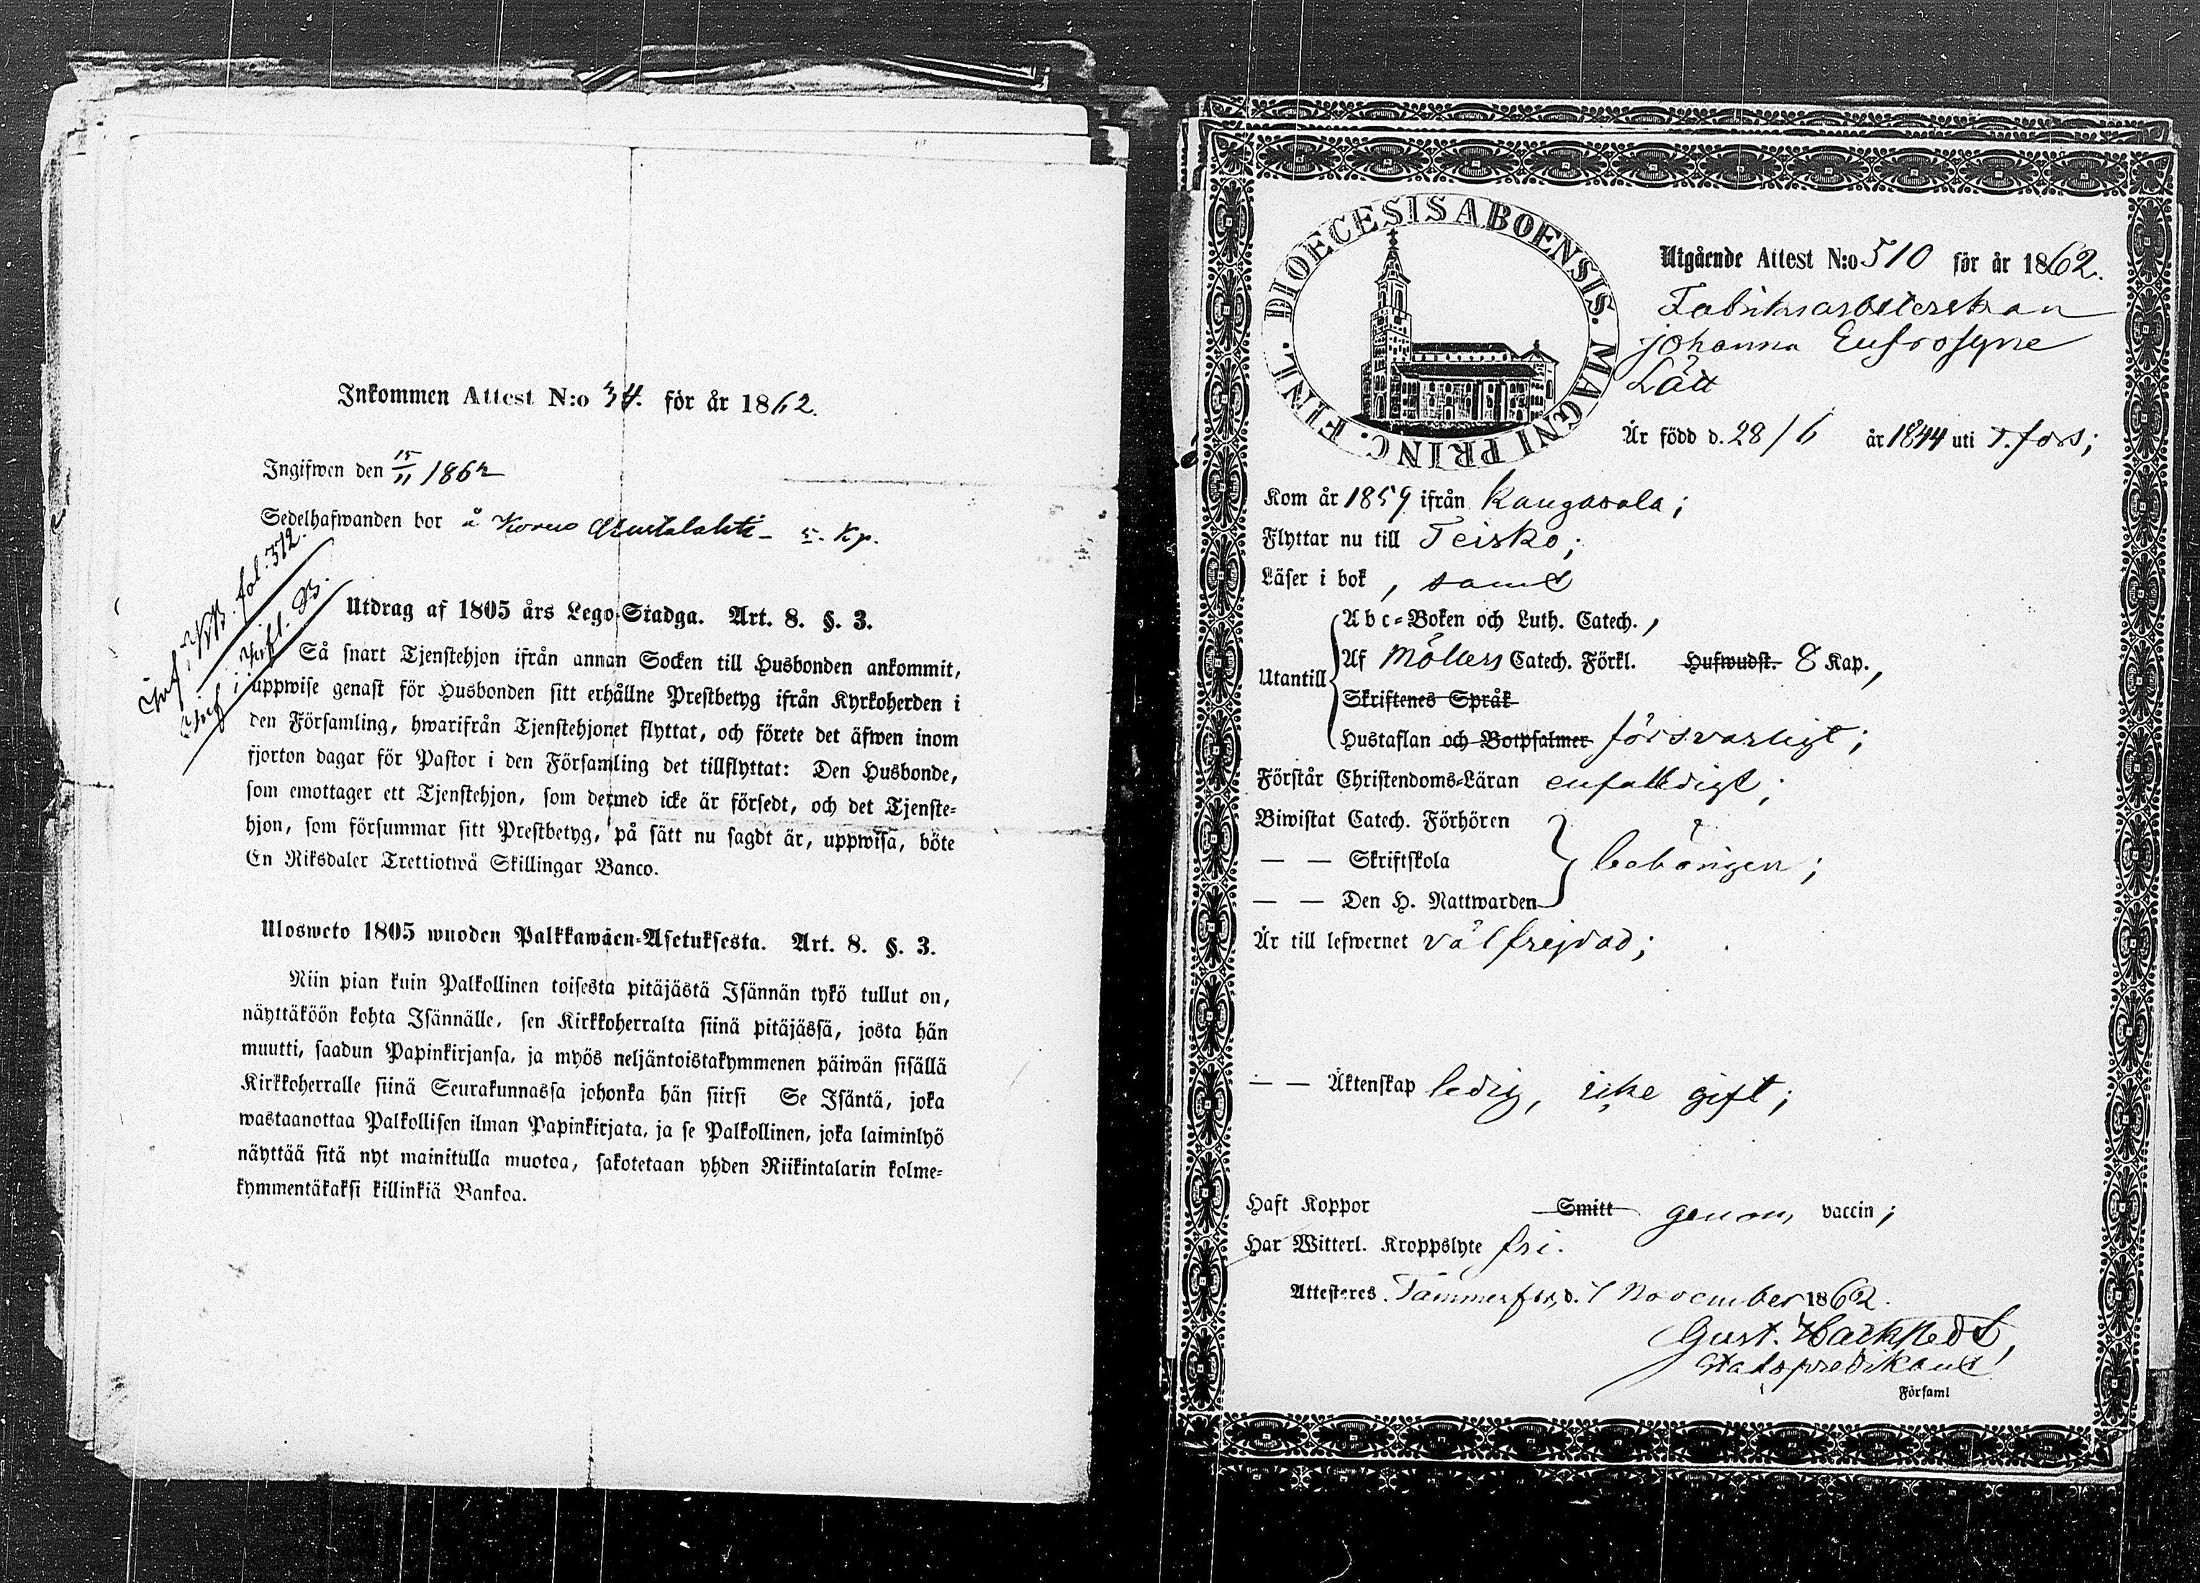 Inkommen Attest N:o 34. för år 1862.
Ingifwen den 15/11 1862
Sedelhafwanden bor å
Inf. KB. fol. 372.
Inf. i Infl. B.
Utdrag af 1805 års Lego-Stadga. Art. 8. §. 3.
Så snart Tjenstehjon ifrån annan Socken till Husbonden ankommit,
uppwise genast för Husbonden sitt erhållne Prestbetyg ifrån Kyrkoherden i
den Församling, hwarifrån Tjenstehjonet flyttat, och förete det äfwen inom
fjorton dagar för Pastor i den Församling det tillflyttat: Den Husbonde,
som emottager ett Tjenstehjon, som dermed icke är försedt, och det Tjenste-
hjon, som försummar sitt Prestbetyg, på sätt nu sagdt är, uppwisa, böte
En Riksdaler Trettiotwå Skillingar Banco.
Ulosweto 1805 wuoden Palkkawäen-Asetuksesta. Art. 8. §. 3.
Niin pian kuin Palkollinen toisesta pitäjästä Isännän tykö tullut on,
näyttäköön kohta Isännälle, sen Kirkkoherralta siinä pitäjässä, josta hän
muutti, saadun Papinkirjansa, ja myös neljäntoistakymmenen päiwän sisällä
Kirkkoherralle siinä Seurakunnassa johonka hän siirsi Se Isäntä, joka
wastaanottaa Palkollisen ilman Papinkirjata, ja se Palkollinen, joka laiminlyö
näyttää sitä nyt mainitulla muotoa, sakotetaan yhden Riikintalarin kolme-
kymmentäkaksi killinkiä Bankoa.
DIOECESIS ABOENSIS. MAGNI PRINC. FINL.
Utgående Attest N:o 510 för år 1862.
Fabriksarbeterskan
Johanna Eufrosyne
Lätt
Är född d. 28/6 år 1844 uti T.fors;
Kom år 1859 ifrån Kangasala;
Flyttar nu till Teisko;
Läser i bok, samt
Utantill
Abc-Boken och Luth. Catech.,
Af Möllers Catech. Förkl. Hufwudst. 8 Kap.,
Skriftenes Språk
Hustaflan och Botpsalmer försvarligt;
Förstår Christendoms-Läran enfaldigt;
Biwistat Catech. Förhören
— — Skriftskola
behörigen;
— — Den H. Nattwarden
Är till lefwernet välfrejdad;
— — Äktenskap ledig, icke gift;
Haft Koppor Smitt genom vaccin;
Har Witterl. Kroppslyte fri.
Attesteres Tammerfors, d. 7 November 1862.
Gust.
Stadspredikant
Församl